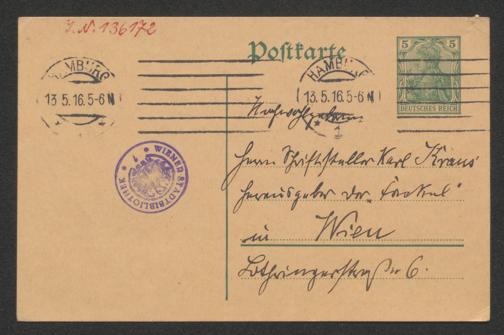 J. N. 136172
Postkarte
HAMBURG
13.5.16.5-6N
1
HAMBURG
13.5.16.5-6N
1
5 5
DEUTSCHES REICH
Hochwohlgeboren
Herrn Schriftsteller Karl Kraus
Herausgeber der "Fackel"
in Wien
Lothringerstraße 6.
WIENER STADTBIBLIOTHEK